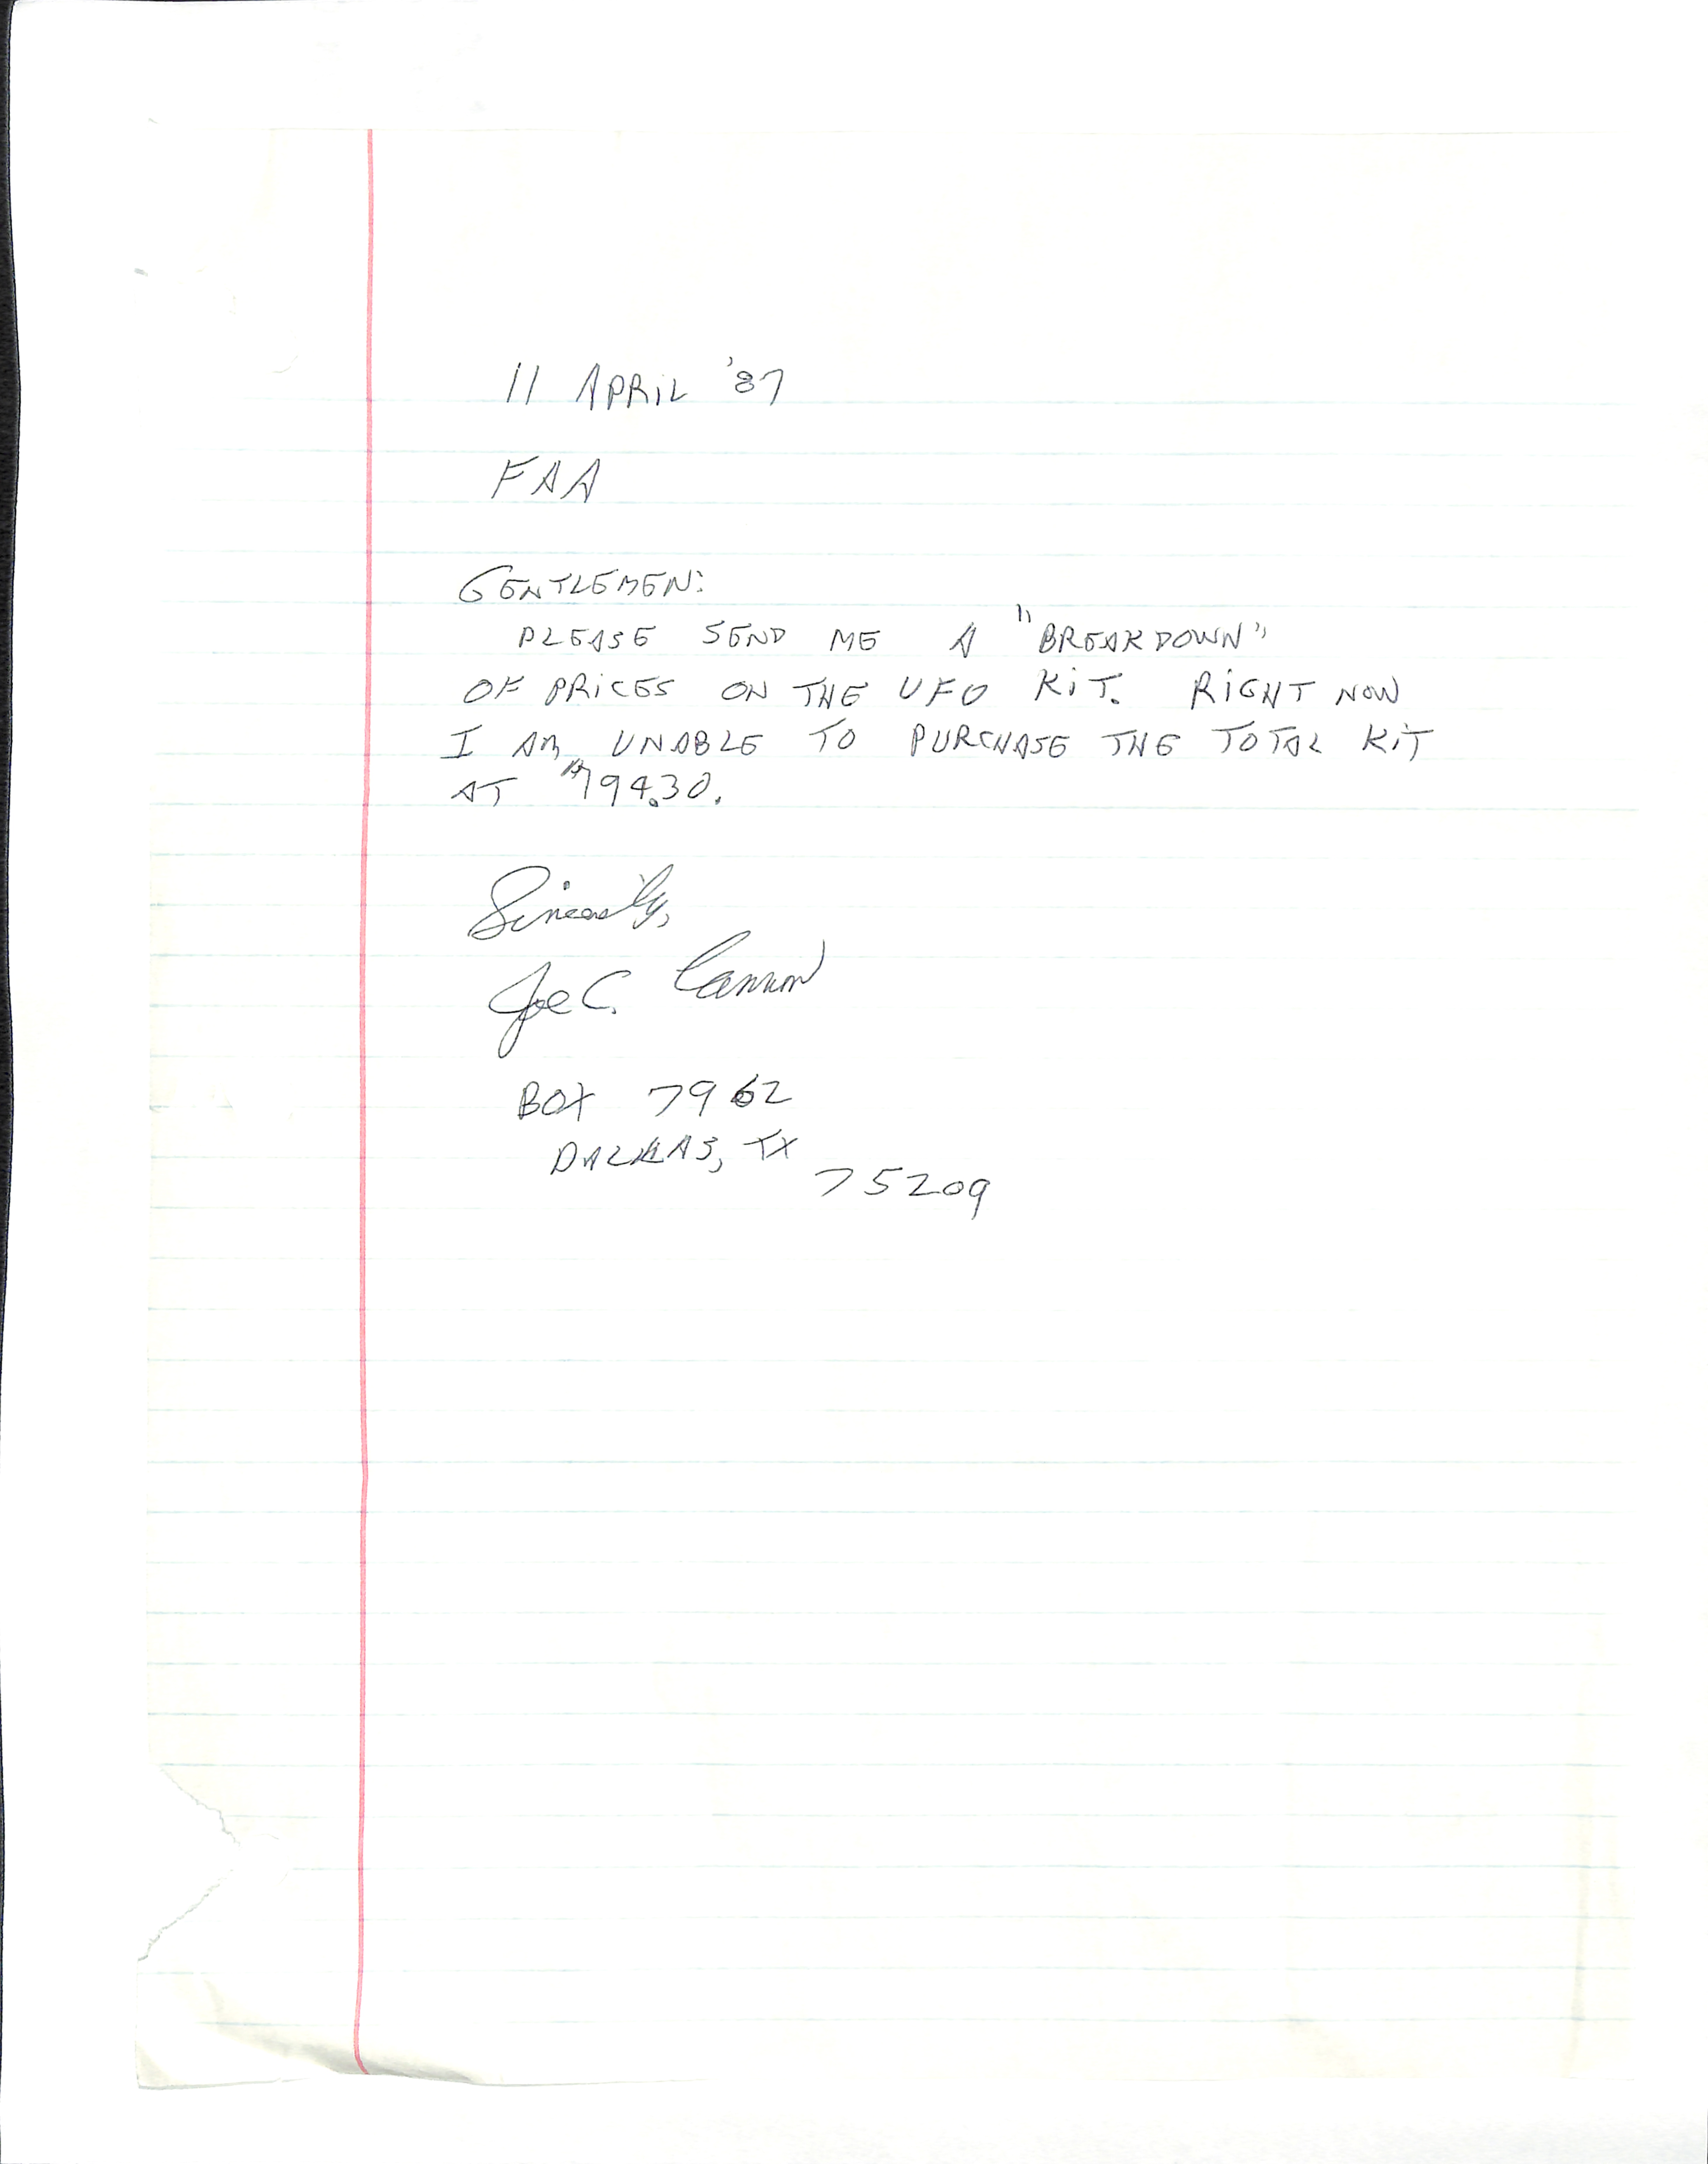 11 APRIL '87
FAA
GENTLEMEN:
PLEASE SEND ME A "BREAKDOWN"
OF PRICES ON THE UFO KIT. RIGHT NOW
I AM UNABLE TO PURCHASE THE TOTAL KIT
AT $194.30.
Sincerely,
Joe C. Cannon
BOX 7962
DALLAS, TX
75209